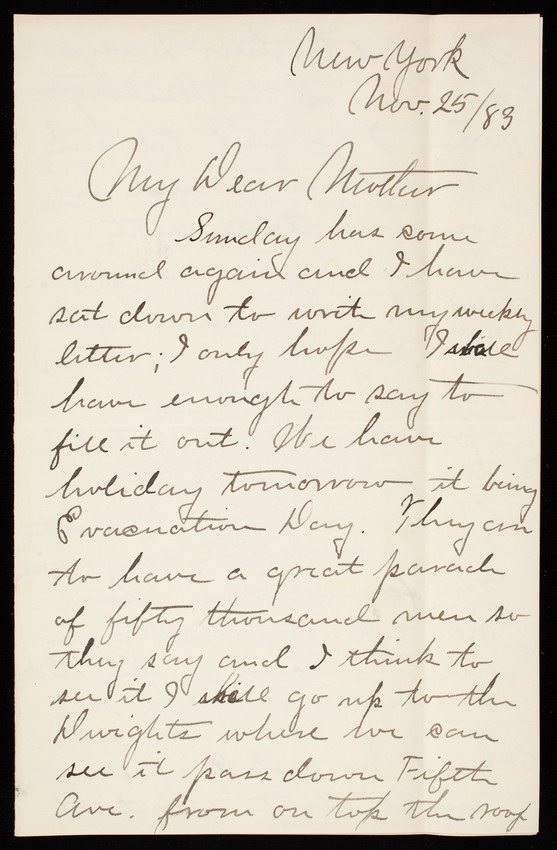 New York
Nov. 25/83
My Dear Mother
Sunday has come
around again and I have
sat down to write my weekly
letter; I only hope I shall
have enough to say to
fill it out. We have
holiday tomorrow it being
Evacuation Day. They are
to have a great parade
of fifty thousand men so
they say and I think to
see it I shall go up to the
Dwights where we can
see it pass down Fifth
Ave. from on top the roof